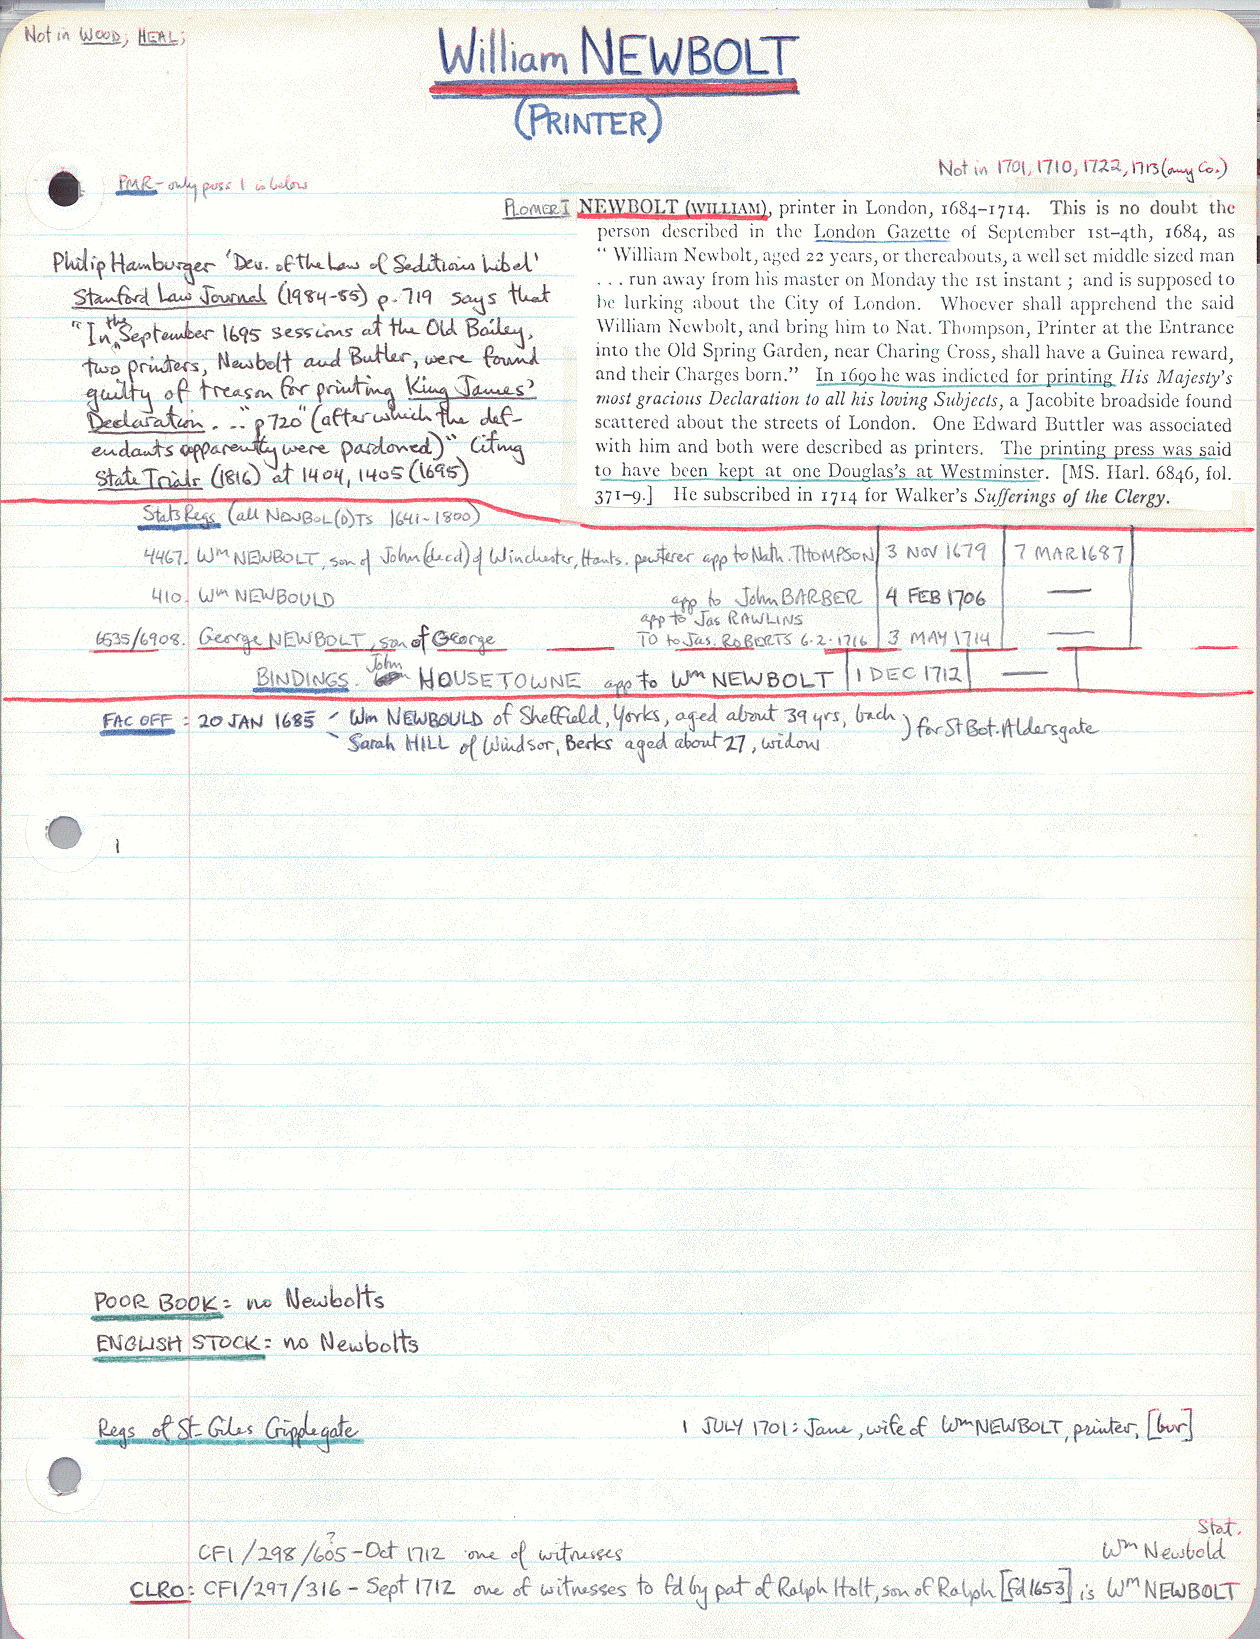 Not in WOOD; HEAL;
William NEWBOLT
(PRINTER)
Not in 1701, 1710, 1722, 1713 (any Co.)
PMR - only poss 1 is below
PLOMER I NEWBOLT (WILLIAM), printer in London, 1684–1714. This is no doubt the
person described in the London Gazette of September 1st–4th, 1684, as
" William Newbolt, aged 22 years, or thereabouts, a well set middle sized man
. . . run away from his master on Monday the 1st instant ; and is supposed to
be lurking about the City of London. Whoever shall apprehend the said
William Newbolt, and bring him to Nat. Thompson, Printer at the Entrance
into the Old Spring Garden, near Charing Cross, shall have a Guinea reward,
and their Charges born." In 1690 he was indicted for printing His Majesty's
most gracious Declaration to all his loving Subjects, a Jacobite broadside found
scattered about the streets of London. One Edward Buttler was associated
with him and both were described as printers. The printing press was said
to have been kept at one Douglas's at Westminster. [MS. Harl. 6846, fol.
371–9.] He subscribed in 1714 for Walker's Sufferings of the Clergy.
Philip Hamburger 'Dev. of the Law of Seditious Libel'
Stanford Law Journal (1984-85) p. 719 says that
"In the September 1695 sessions at the Old Bailey,
two printers, Newbolt and Butler, were found
guilty of treason for printing King James'
Declaration. .." p 720 "(after which the def-
endants apparently were pardoned)" Citing
State Trials (1816) at 1404, 1405 (1695)
Stats Regs (all NEWBOL(D)TS 1641-1800)
4467. Wm NEWBOLT, son of John (decd) of Winchester, Hants. pewterer app to Nath. THOMPSON 3 NOV 1679 7 MAR 1687
410. Wm NEWBOULD app to John BARBER 4 FEB 1706 —
app to Jas RAWLINS
6535/6908. George NEWBOLT, son of George TO to Jas. ROBERTS 6·2·1716 3 MAY 1714 —
BINDINGS. John HOUSETOWNE app to Wm NEWBOLT 1 DEC 1712 —
FAC OFF: 20 JAN 1685 Wm NEWBOULD of Sheffield, Yorks, aged about 39 yrs, bach
Sarah HILL of Windsor, Berks aged about 27, widow ) for St Bot. Aldersgate
POOR BOOK: no Newbolts
ENGLISH STOCK: no Newbolts
Regs of St. Giles Cripplegate 1 JULY 1701: Jane, wife of Wm NEWBOLT, printer, [bur]
Stat.
CF1/298/605? - Oct 1712 one of witnesses Wm Newbold
CLRO: CF1/297/316 - Sept 1712 one of witnesses to fd by pat of Ralph Holt, son of Ralph [fd 1653] is Wm NEWBOLT